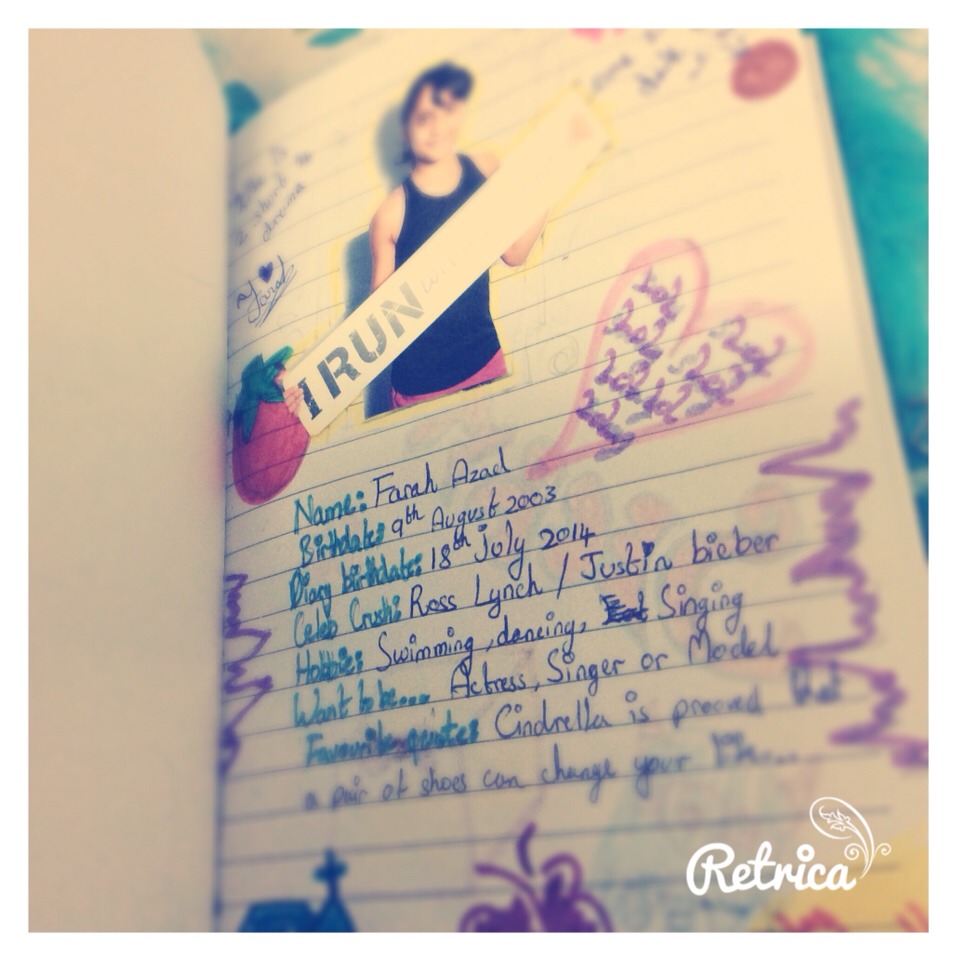 I RUN
Name: Farah Azad
Birthdate: 9th August 2003
Diary birthdate: 18th July 2014
Celeb Crush: Ross Lynch / Justin bieber
Hobbies: Swimming, dancing, Singing
Want to be... Actress, Singer or Model
Favourite quote: Cindrella is prooved that
a pair of shoes can change your life....
Retrica